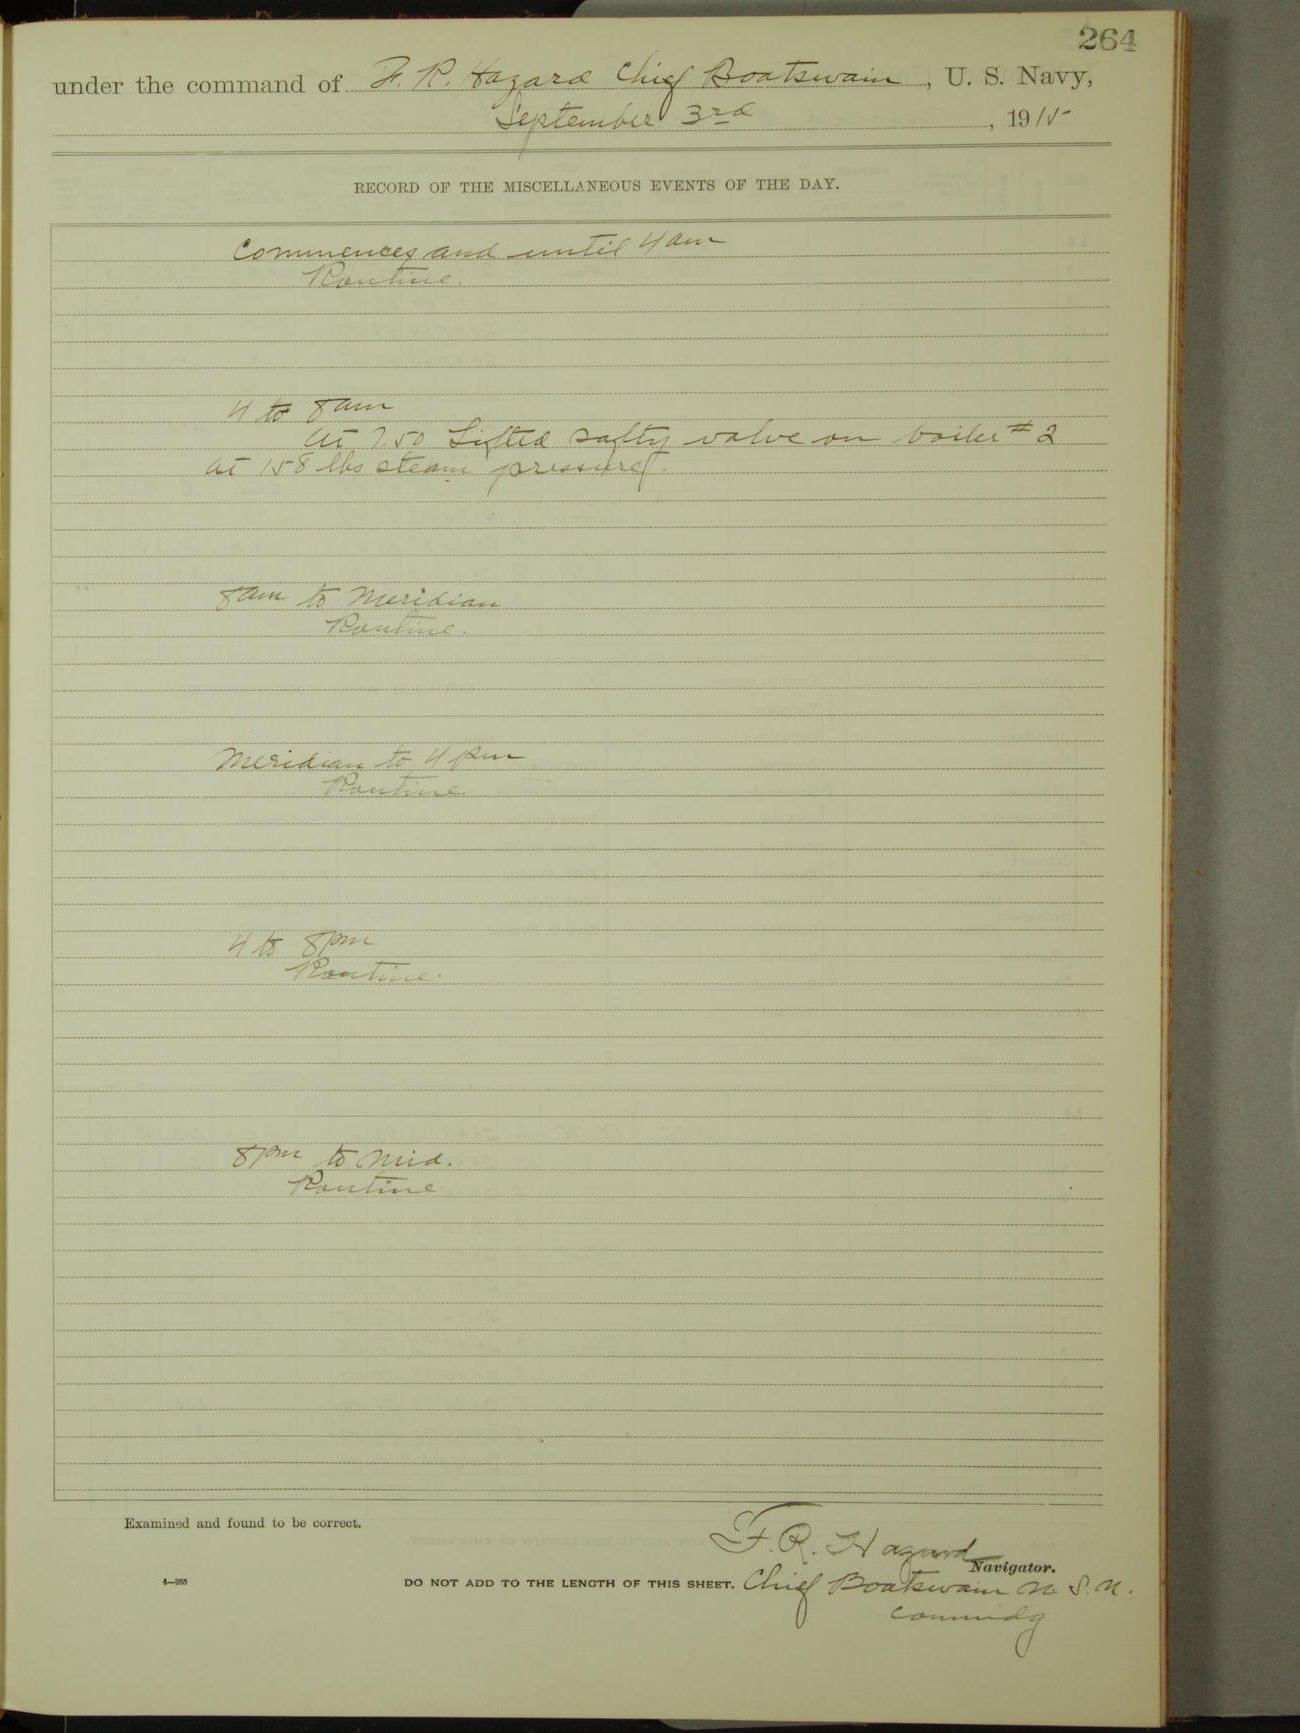 264
under the command of F. R. Hazard Chief Boatswain, U. S. Navy,
September 3rd, 1915
RECORD OF THE MISCELLANEOUS EVENTS OF THE DAY.
Commences and until 4 am
Routine.
4 to 8 am
At 7.50 Lifted safty valve on boiler #2
at 158 lbs steam pressure.
8 am to Meridian
Routine.
Meridian to 4 pm
Routine.
4 to 8 pm
Routine.
8 pm to Mid.
Routine.
Examined and found to be correct.
F. R. Hazard
Navigator.
4—265
DO NOT ADD TO THE LENGTH OF THIS SHEET. Chief Boatswain U. S. N.
Commdg